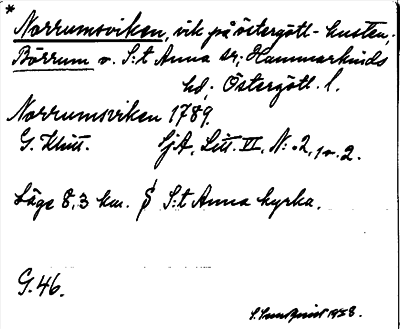 * Norrumsviken, vik på östergötl-kusten,
Börrum o. S:t Anna sr; Hammarkinds
hd; Östergötl. l.
Norrumsviken 1789.
G. Klint. SjA, Litt. VI, N:o 2, 1 o. 2.
Läge 8,3 km. S S:t Anna kyrka.
G.46.
S. Lundqvist 1928.